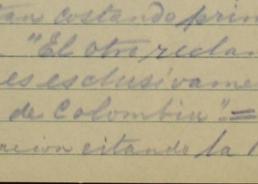 tan costando prin
"El otro reclam
es esclusivame
de Colombia".=
acion citando la